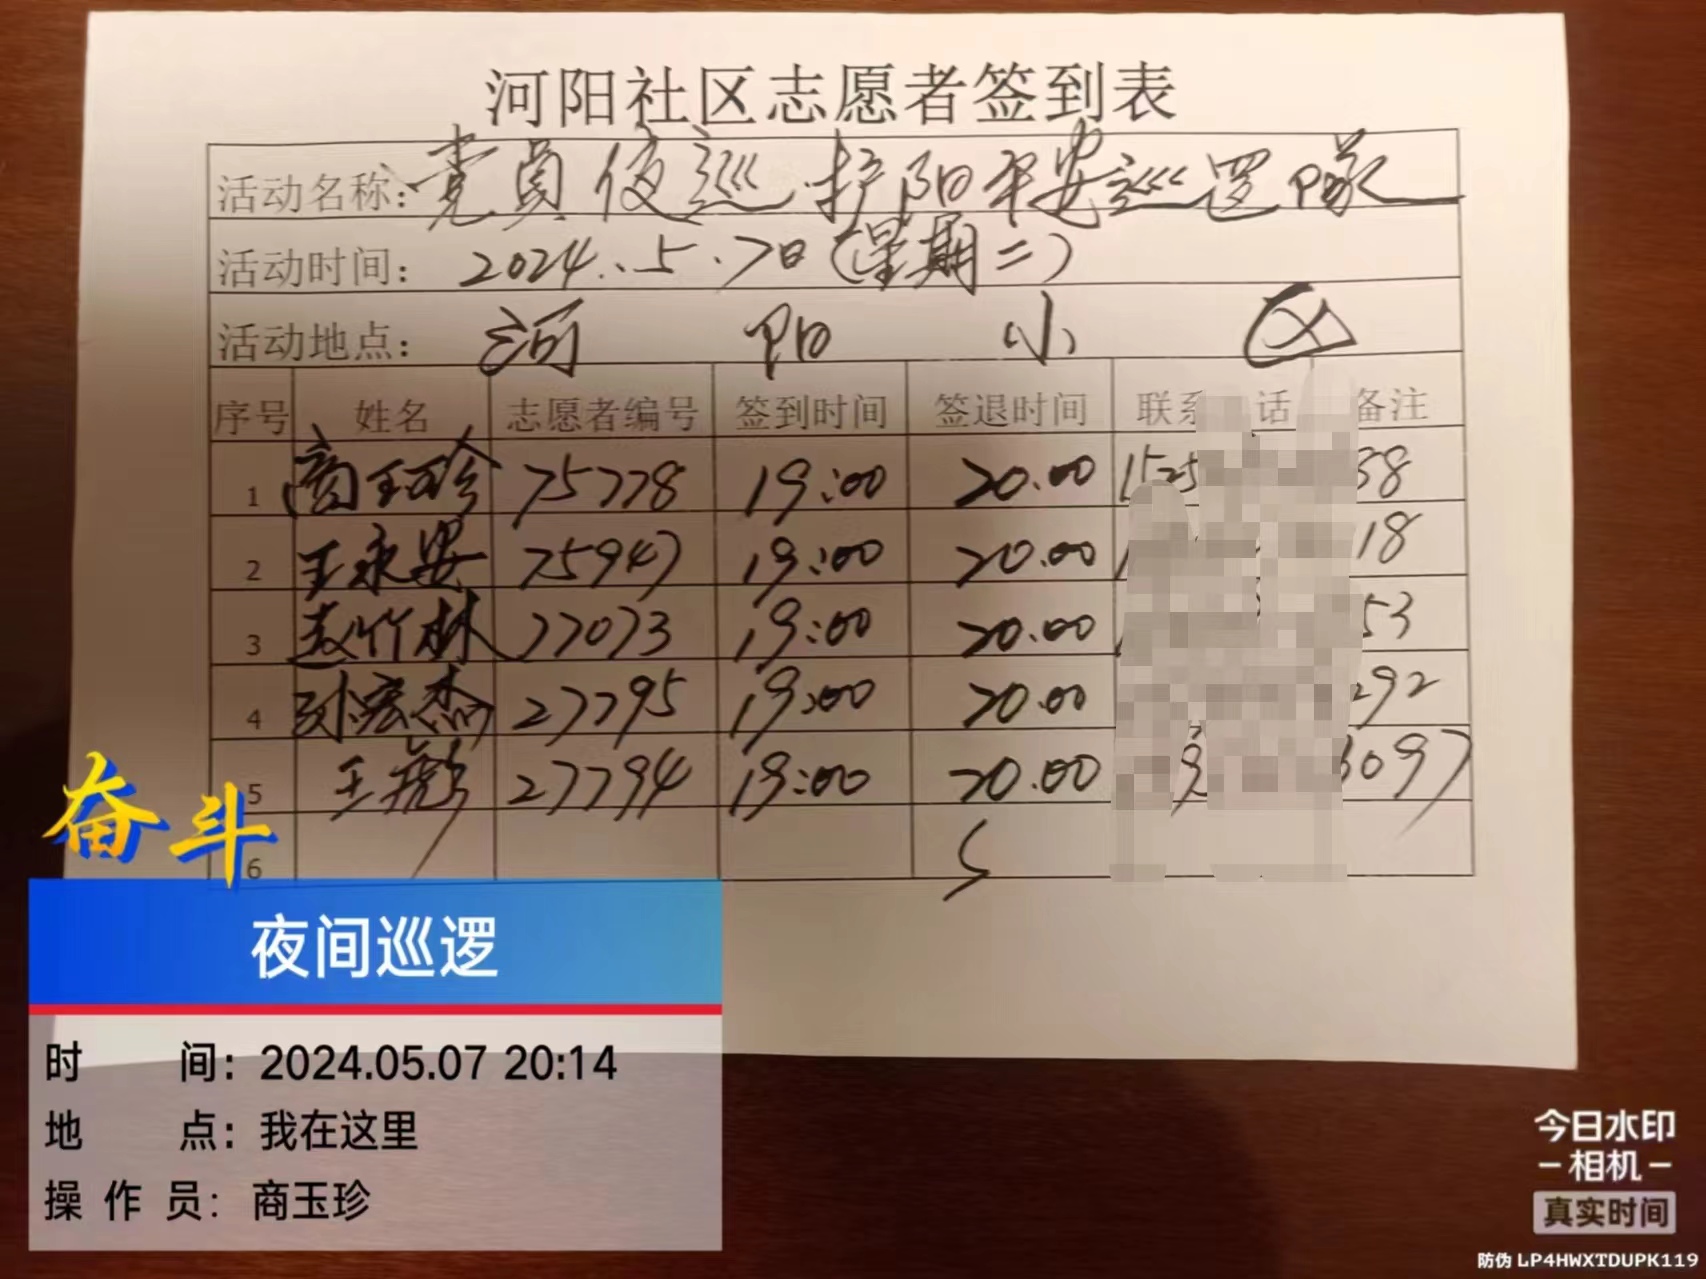 河阳社区志愿者签到表
活动名称：党员夜巡·护阳平安巡逻队
活动时间：2024.5.7日（星期二）
活动地点：河阳小区
序号 姓名 志愿者编号 签到时间 签退时间 联系 话 备注
1 商玉珍 75778 19:00 20.00 1525 38
2 王永安 75947 19:00 20.00 18
3 赵竹林 77073 19:00 20.00 53
4 孙宏杰 27795 19:00 20.00 292
5 王彪 27794 19:00 20.00 6097
6
奋斗
夜间巡逻
时 间：2024.05.07 20:14
地 点：我在这里
操 作 员：商玉珍
今日水印
-相机-
真实时间
防伪 LP4HWXTDUPK119